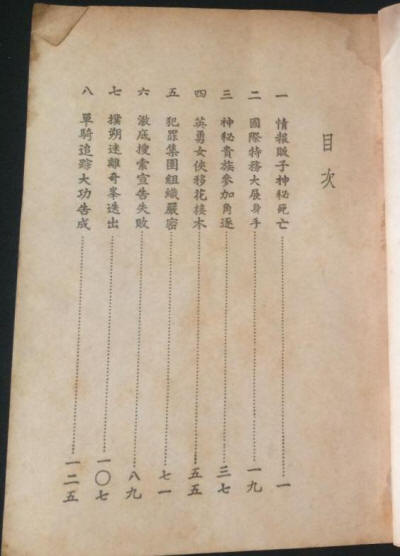 目次
一 情報販子神秘死亡……一
二 國際特務大展身手……一九
三 神秘貴族參加角逐……三七
四 英勇女俠移花接木……五五
五 犯罪集團組織嚴密……七一
六 澈底搜索宣告失敗……八九
七 撲朔迷離奇峯迭出……一〇七
八 單騎追踪大功告成……一二五